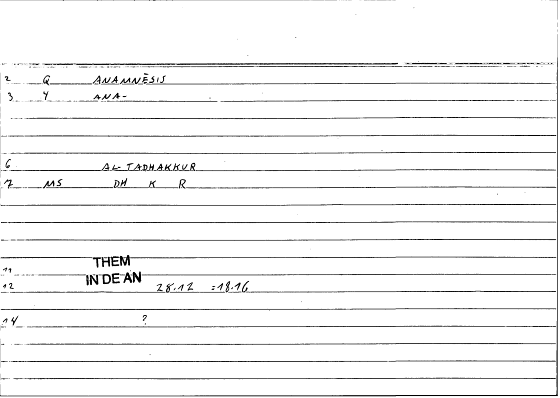 2 Q ANAMNĒSIS
3 Y ANA-
6 AL-TADHAKKUR
7 MS DH K R
11 THEM
IN DE AN
12 28.12 =18.16
14 ?